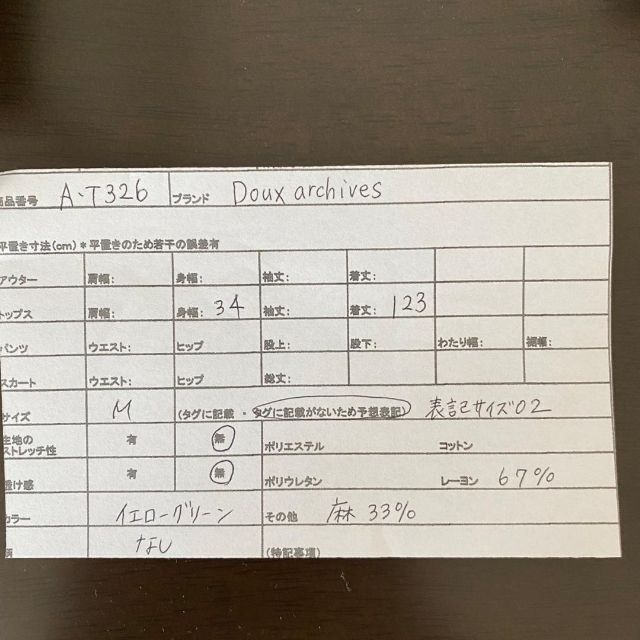 商品番号 A-T326 ブランド Doux archives
平置き寸法(cm)*平置きのため若干の誤差有
アウター 肩幅: 身幅: 袖丈: 着丈:
トップス 肩幅: 身幅: 34 袖丈: 着丈: 123
パンツ ウエスト: ヒップ 股上: 股下: わたり幅: 裾幅:
スカート ウエスト: ヒップ 総丈:
サイズ M (タグに記載・タグに記載がないため予想表記) 表記サイズ02
生地の
ストレッチ性 有 無 ポリエステル コットン
透け感 有 無 ポリウレタン レーヨン 67%
カラー イエローグリーン その他 麻 33%
柄 なし (特記事項)